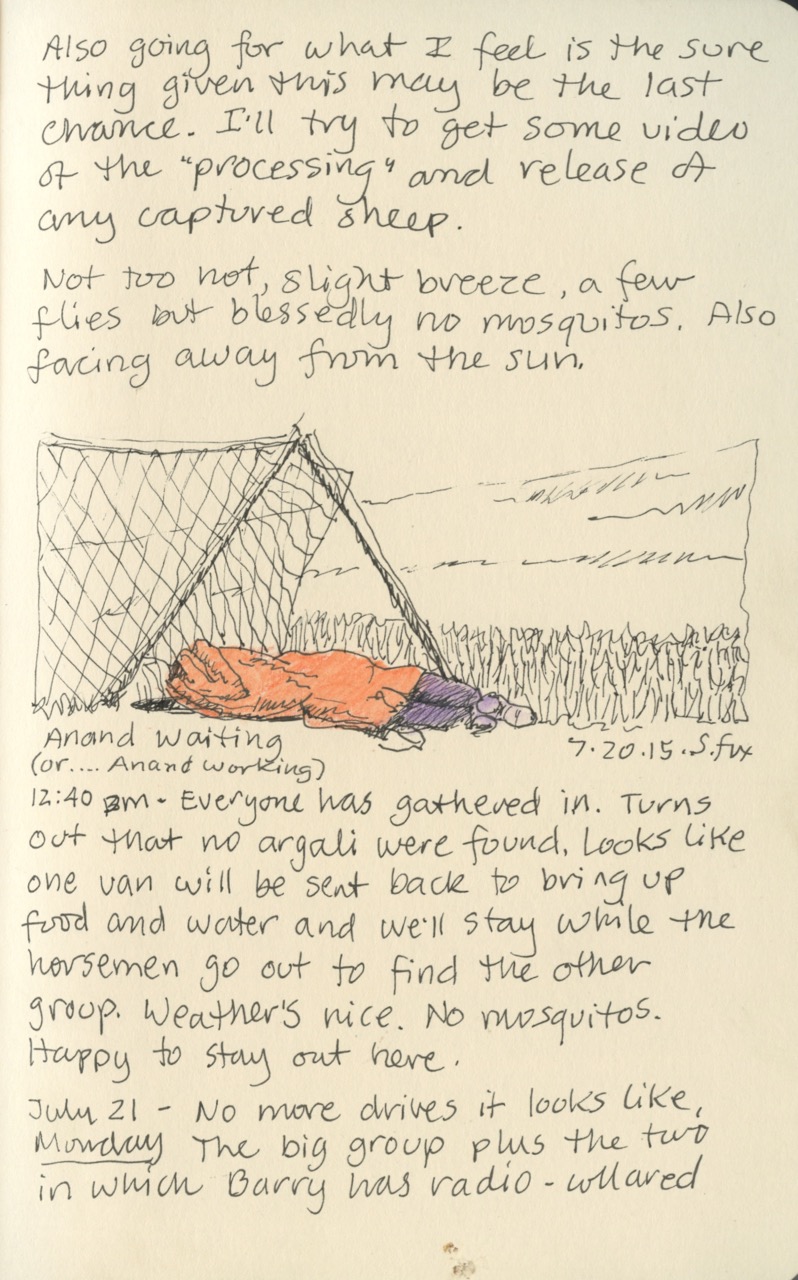 Also going for what I feel is the sure
thing given this may be the last
chance. I'll try to get some video
of the "processing" and release of
any captured sheep.
Not too hot, slight breeze, a few
flies but blessedly no mosquitos. Also
facing away from the sun.
Anand Waiting
(or.... Anand working)
7.20.15.S.fox
12:40 pm - Everyone has gathered in. Turns
out that no argali were found. Looks like
one van will be sent back to bring up
food and water and we'll stay while the
horsemen go out to find the other
group. Weather's nice. No mosquitos.
Happy to stay out here.
July 21 - No more drives it looks like,
Monday The big group plus the two
in which Barry has radio-collared